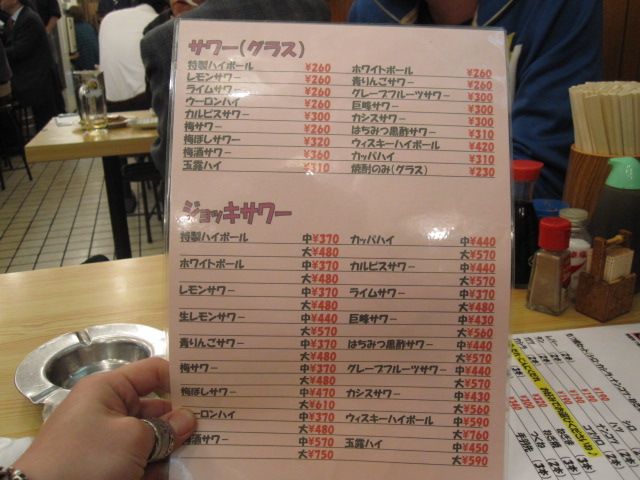 サワー(グラス)
特製ハイボール ¥260 ホワイトボール ¥260
レモンサワー ¥260 青りんごサワー ¥260
ライムサワー ¥260 グレープフルーツサワー ¥300
ウーロンハイ ¥260 巨峰サワー ¥300
カルピスサワー ¥300 カシスサワー ¥300
梅サワー ¥260 はちみつ黒酢サワー ¥310
梅ぼしサワー ¥320 ウィスキーハイボール ¥420
梅酒サワー ¥360 カッパハイ ¥310
玉露ハイ ¥310 焼酎のみ(グラス) ¥230
ジョッキサワー
特製ハイボール 中¥370 カッパハイ 中¥440
大¥480 大¥570
ホワイトボール 中¥370 カルピスサワー 中¥440
大¥480 大¥570
レモンサワー 中¥370 ライムサワー 中¥370
大¥480 大¥480
生レモンサワー 中¥440 巨峰サワー 中¥430
大¥570 大¥560
青りんごサワー 中¥370 はちみつ黒酢サワー 中¥440
大¥480 大¥570
梅サワー 中¥370 グレープフルーツサワー 中¥440
大¥480 大¥570
梅ぼしサワー 中¥470 カシスサワー 中¥430
大¥610 大¥560
ーロンハイ 中¥370 ウィスキーハイボール 中¥590
大¥480 大¥760
酒サワー 中¥570 玉露ハイ 中¥450
大¥750 大¥590